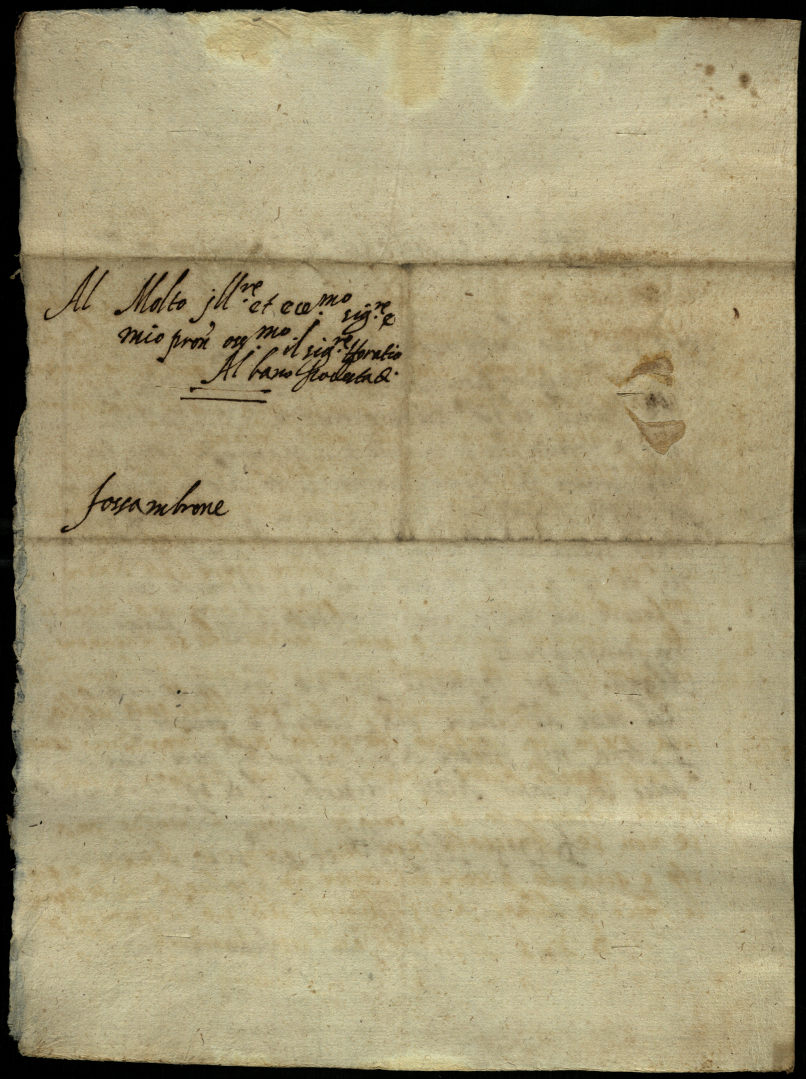 Al Molto jll.re et ecc.mo sig.re e
mio pron̄ oss.mo il sig.re Horatio
Albano Podesta di
fossambrone